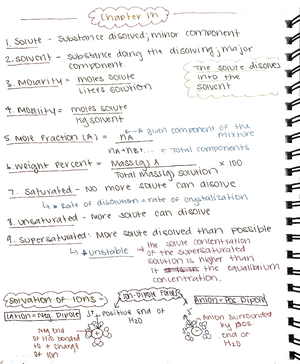 Chapter 12
1. Solute - Substance disolved; minor component
2. Solvent - Substance doing the disolving; major
component.
The solute disolves
into the
solvent
3. Molarity = moles solute
Liters solution
4. Molality = moles solute
kg solvent
5. Mole Fraction (A) = nA
given component of the
mixture
nA+nB+... = Total components
6. Weight Percent = Mass(g) A × 100
Total mass(g) solution
7. Saturated - No more solute can disolve
↳ Rate of disolution = rate of crystallization
8. Unsaturated - More solute can disolve
9. Supersaturated - More solute disolved than possible
↳ * unstable → the solute concentration
of the supersaturated
solution is higher than
it the equilibrium
concentration.
Solvation of Ions -
Ion-Dipole Forces
Cation = Neg. Dipole
Anion = Pos. Dipole
Positive end of
H2O
Neg end
of H2O bonded
to + charge
of ion
Anion surrounded
by pos.
end of
H2O